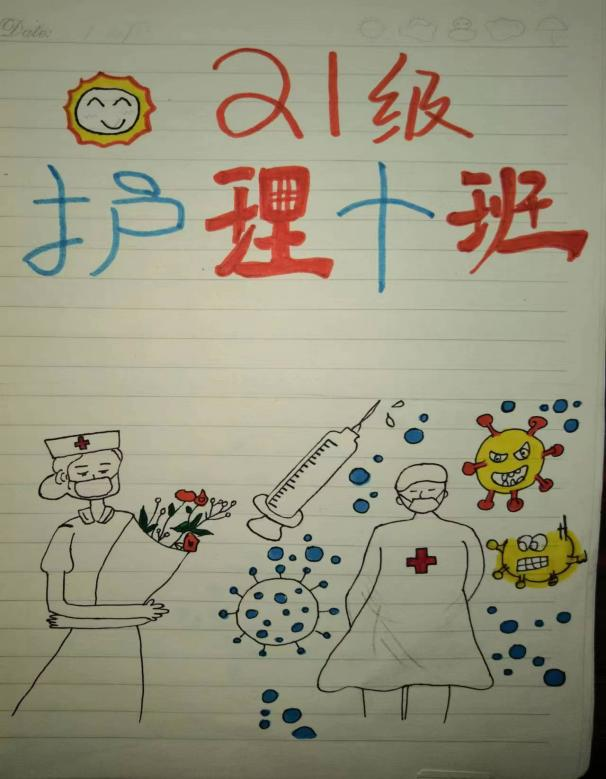 Date:
21级
护理十班